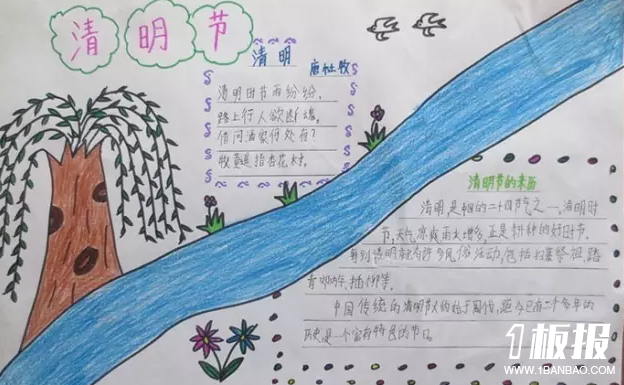 清明节
清明 唐杜牧
清明时节雨纷纷，
路上行人欲断魂。
借问酒家何处有？
牧童遥指杏花村。
清明节的来历
清明，是中国的二十四节气之一。清明时
节，天气凉爽雨水增多，正是耕种的好时节。
每到清明就有许多风俗活动，包括扫墓祭祖、踏
青、插柳等。
中国传统的清明节大约始于周代，距今已有二千多年的
历史是一个富有特色的节日。
1板报
WWW.1BANBAO.COM